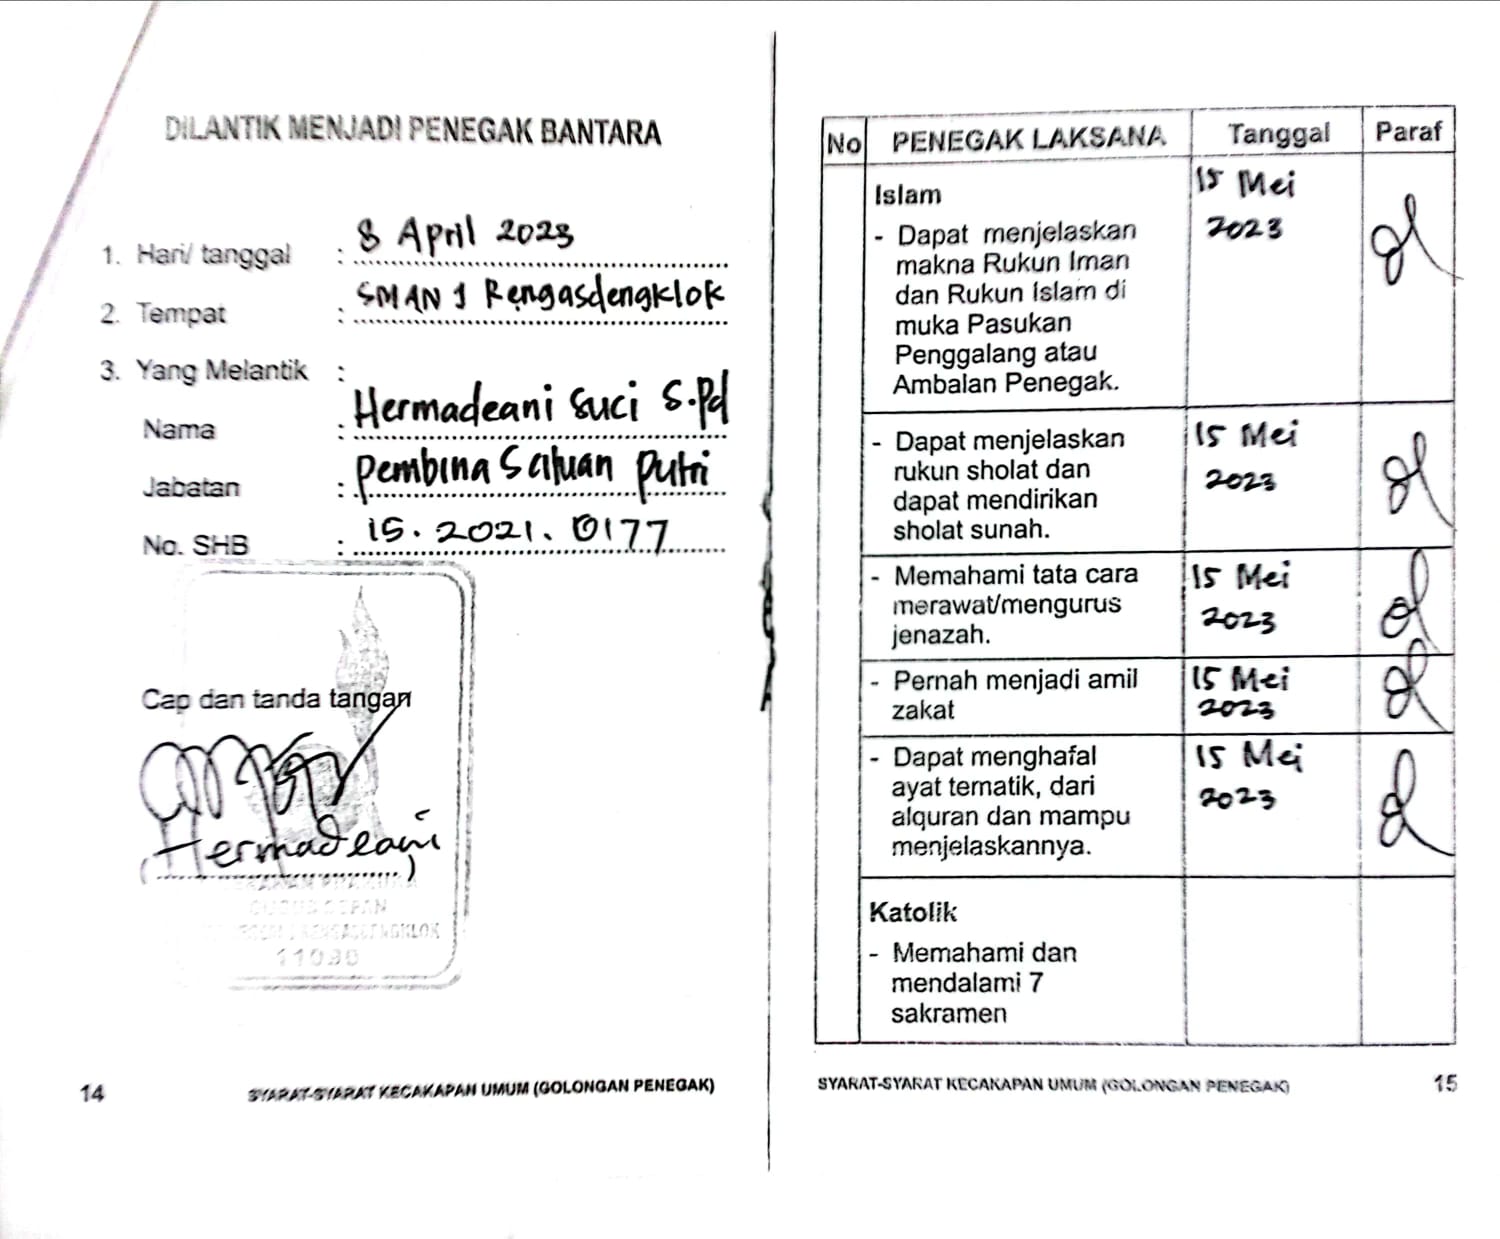 DILANTIK MENJADI PENEGAK BANTARA
1. Hari/ tanggal : 8 April 2023
2. Tempat : SMAN 1 Rengasdengklok
3. Yang Melantik :
Nama : Hermadeani Suci S.Pd
Jabatan : Pembina Satuan Putri
No. SHB : 15.2021.0177
Cap dan tanda tangan
(Hermadeani)
GUGUS DEPAN
RENGASDENGKLOK
14 SYARAT-SYARAT KECAKAPAN UMUM (GOLONGAN PENEGAK)
No PENEGAK LAKSANA Tanggal Paraf
Islam 15 Mei
- Dapat menjelaskan 2023
makna Rukun Iman
dan Rukun Islam di
muka Pasukan
Penggalang atau
Ambalan Penegak.
- Dapat menjelaskan 15 Mei
rukun sholat dan 2023
dapat mendirikan
sholat sunah.
- Memahami tata cara 15 Mei
merawat/mengurus 2023
jenazah.
- Pernah menjadi amil 15 Mei
zakat 2023
- Dapat menghafal 15 Mei
ayat tematik, dari 2023
alquran dan mampu
menjelaskannya.
Katolik
- Memahami dan
mendalami 7
sakramen
SYARAT-SYARAT KECAKAPAN UMUM (GOLONGAN PENEGAK) 15